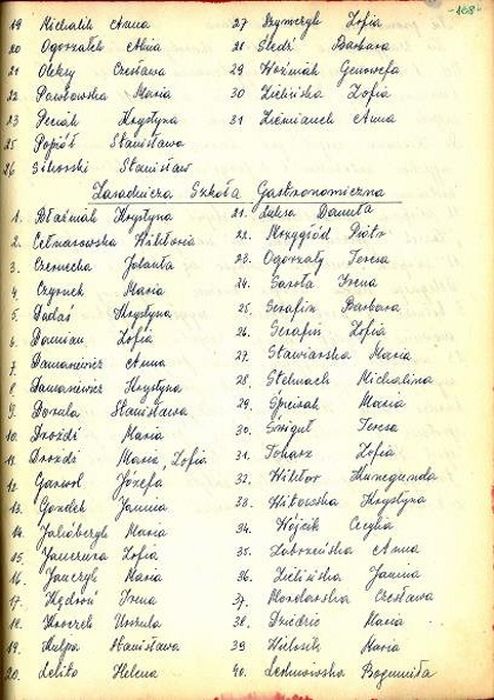 -168-
19 Michalik Anna
20 Ogorzałek Alina
21 Oleksy Czesława
22 Pawłowska Maria
23 Peciak Krystyna
25 Popiół Stanisława
26 Sikorski Stanisław
27 Szymczyk Zofia
28 Śledź Barbara
29 Woźniak Genowefa
30 Zielińska Zofia
31 Anna
Zasadnicza Szkoła Gastronomiczna
1. Błaźniak Krystyna
2. Cetnarowska Wiktoria
3. Czernecka Jolanta
4. Czyrnek Maria
5. Dadaś Krystyna
6. Damian Zofia
7. Damasiewicz Anna
8. Damasiewicz Krystyna
9. Stanisława
10. Drożdż Maria
11. Drożdż Maria, Zofia
12. Józefa
13. Janina
14. Maria
15. Zofia
16. Janczyk Maria
17. Kądroń Irena
18. Kroczek Urszula
19. Kulpa Stanisława
20. Lelito Helena
21. Łuksa Danuta
22. Mrzygłód Piotr
23. Ogorzały Teresa
24. Sarota Irena
25. Serafin Barbara
26. Serafin Zofia
27. Stawiarska Maria
28. Stelmach Michalina
29. Maria
30. Śmiguł Teresa
31. Tokarz Zofia
32. Wiktor Kunegunda
33. Witowska Krystyna
34. Wójcik Cecylia
35. Zabrzeńska Anna
36. Zielińska Janina
37. Czesława
38. Maria
39 Wilosik Maria
40. Bogumiła